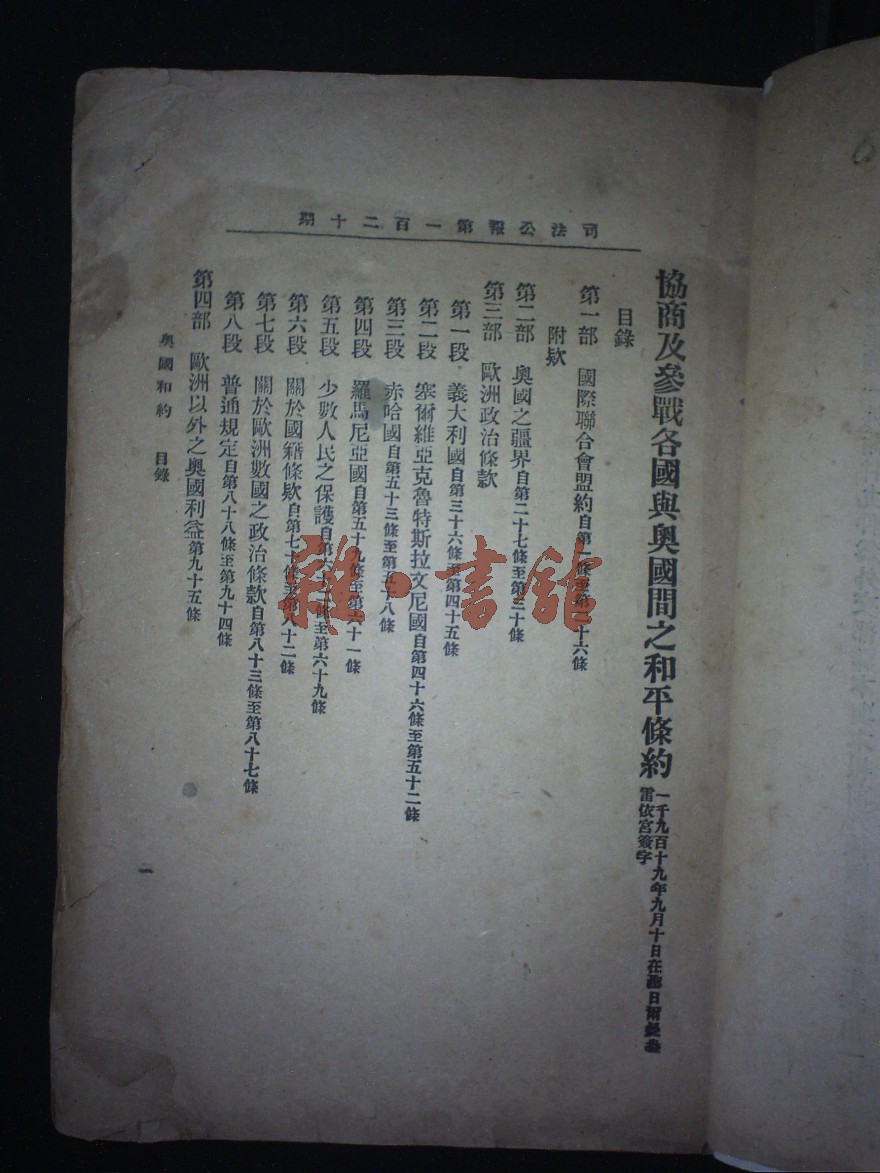 司法公報第一百二十期
協商及參戰各國與奧國間之和平條約
一千九百十九年九月十日在
日爾
雷依宮簽字
目錄
第一部 國際聯合會盟約自第一條至第二十六條
附欵
第二部 奧國之疆界自第二十七條至三十條
第三部 歐洲政治條款
第一段 義大利國自第三十六條至第四十五條
第二段 塞爾維亞克魯特斯拉文尼國自第四十六條至第五十二條
第三段 赤哈國自第五十三條至第五十八條
第四段 羅馬尼亞國自第五十九條至第六十一條
第五段 少數人民之保護自第六十二條至第六十九條
第六段 關於國籍條欵自第七十條至第八十二條
第七段 關於歐洲數國之政治條款自第八十三條至第八十七條
第八段 普通規定自第八十八條至第九十四條
第四部 歐洲以外之奧國利益第九十五條
奧國和約 目錄
一
雜·書館